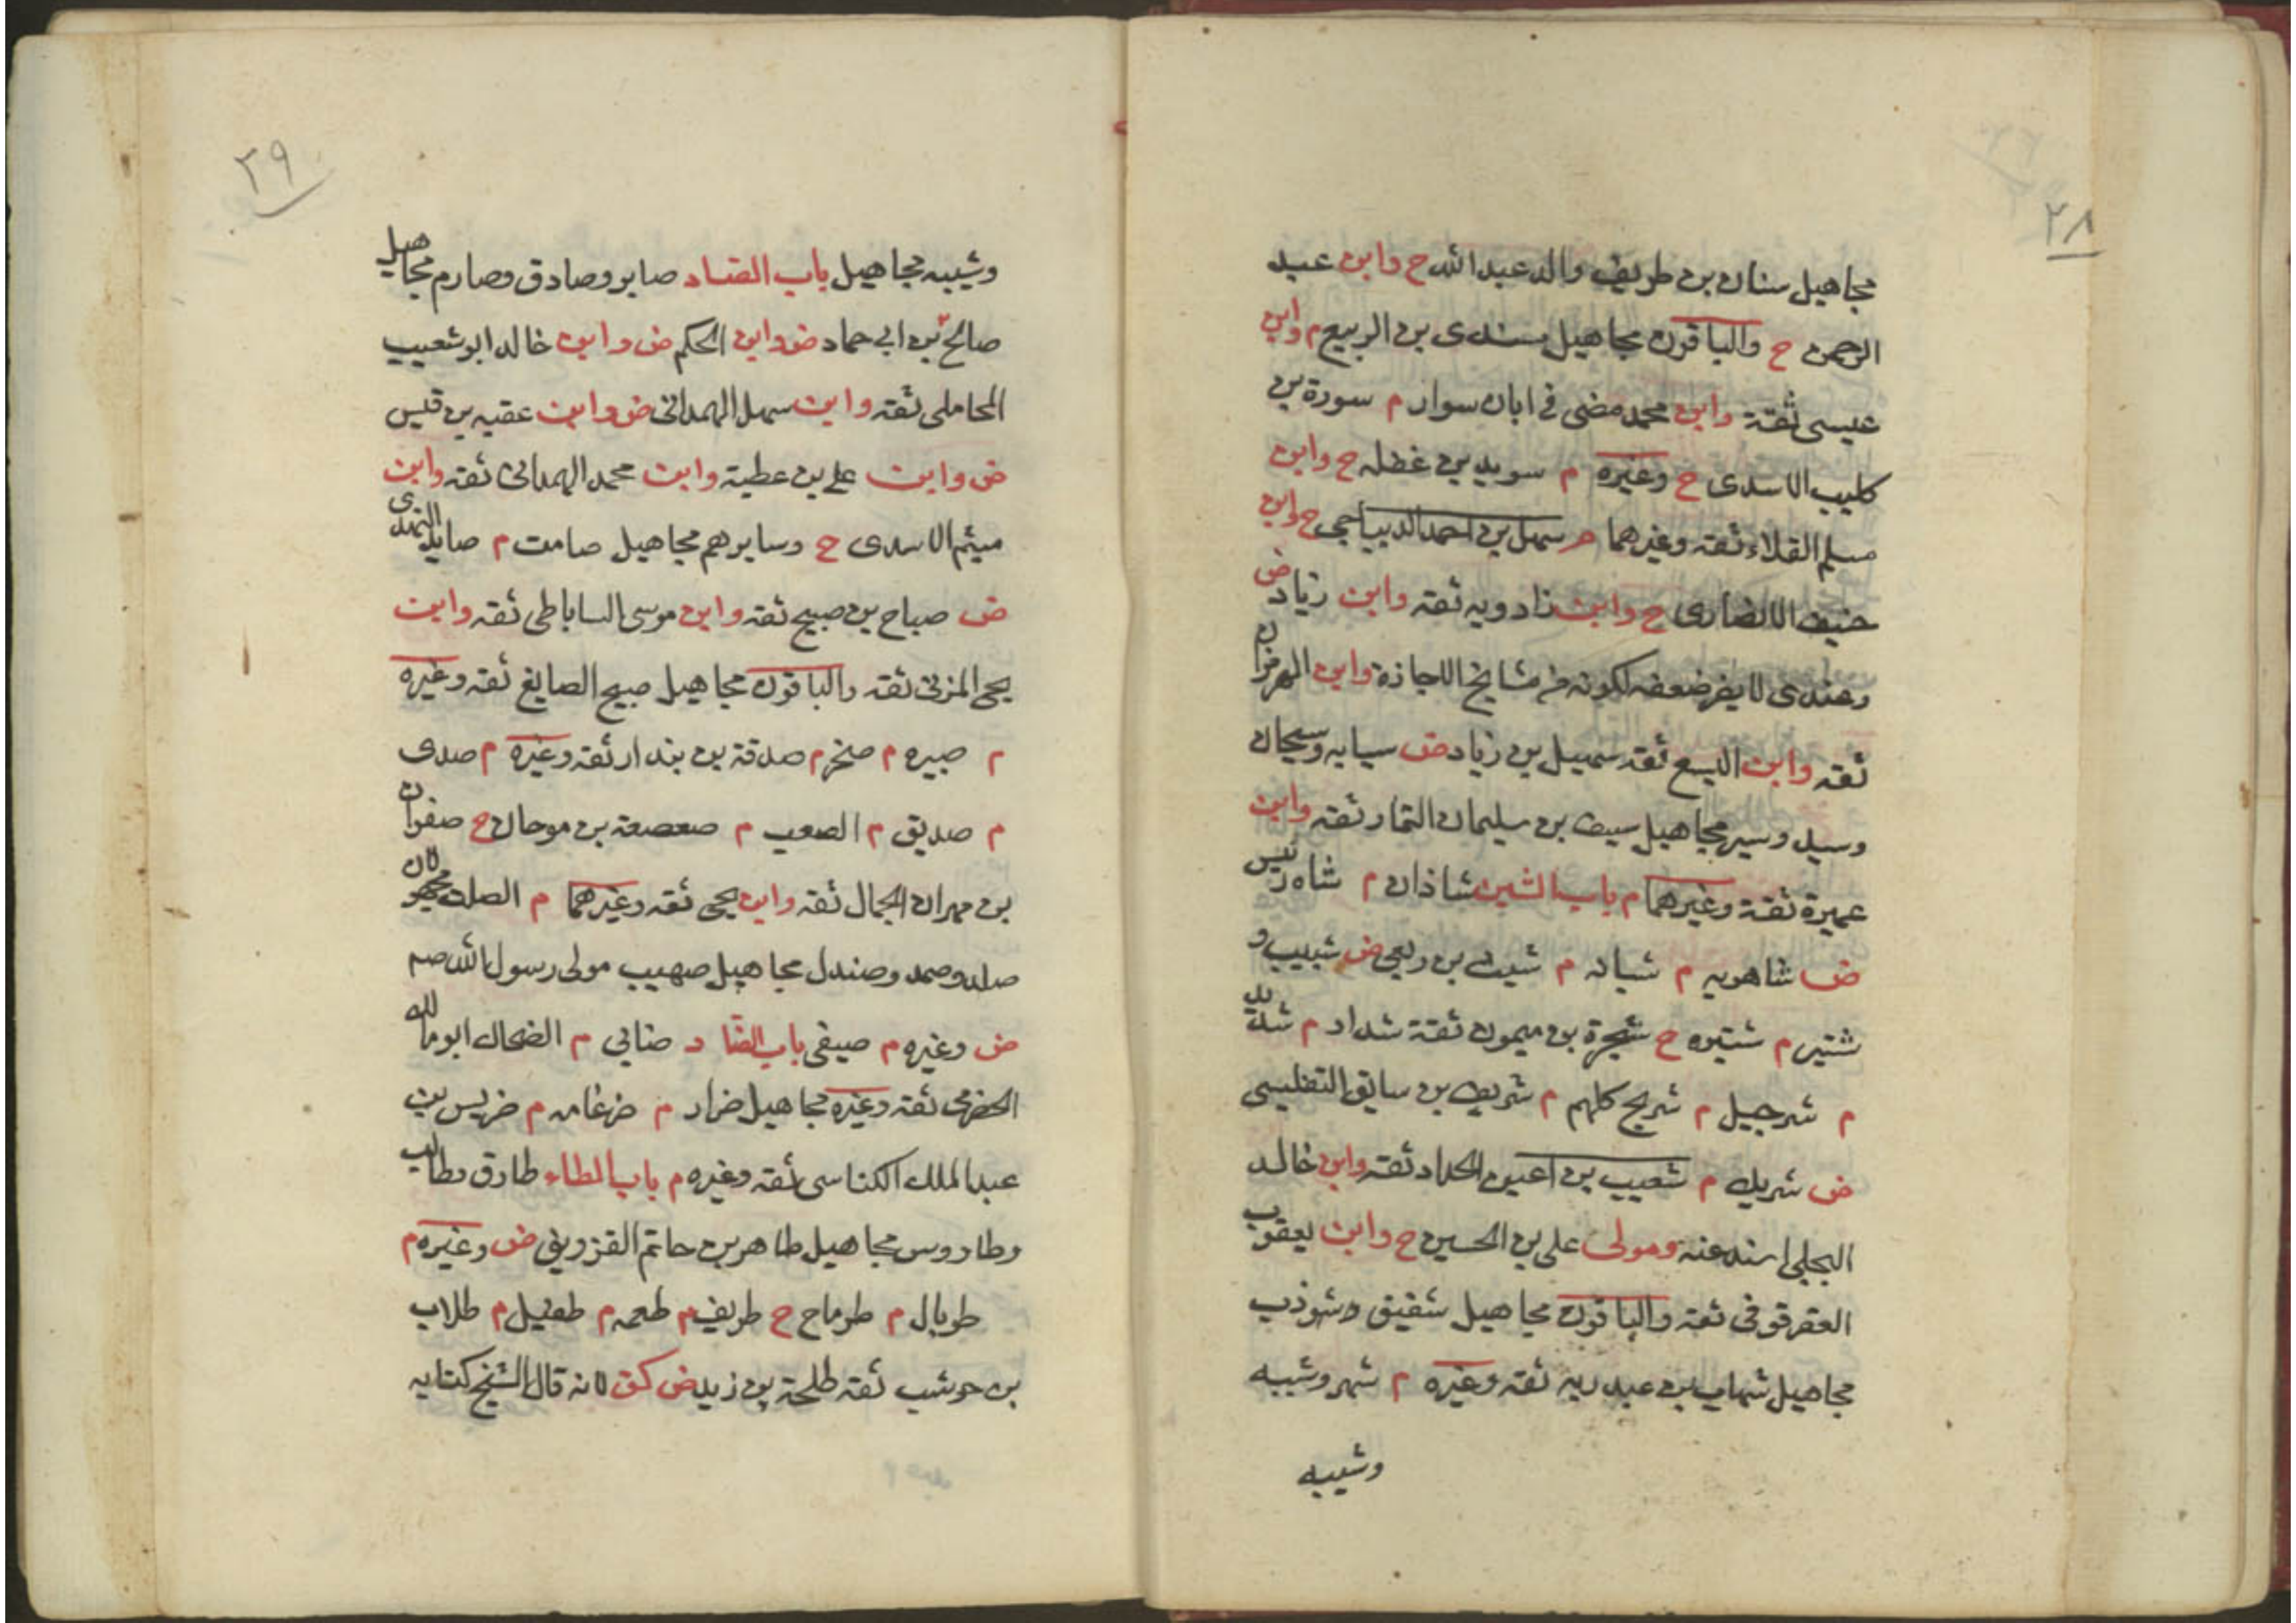 ٢٨
مجاهيل سنان بن طريف والد عبد الله ح وابن عبد
الرحمن ح والباقون مجاهيل سندى بن الربيع م وابن
عيسى ثقة وابن محمد مضى فى ابان سوار م سورة بن
كليب الاسدى ح وغيره م سويد بن غفله ح وابن
مسلم القلاء ثقه وغيرهما م سهل بن احمد الديباجى ح وابن
حنيف الانصارى ح وابن زادويه ثقه وابن زياد ض
وعندى لا يضر ضعفه لكونه من مشايخ الاجازة وابن الهرمزان
ثقه وابن اليسع ثقه سهيل بن زياد ض سيابه وسيحان
وسيد وسير مجاهيل سيف بن سليمان التمار ثقه وابن
عميرة ثقة وغيرهما م باب الشين شاذان م شاه رئيس
ض شاهويه م شبانه م شبث بن ربعى ض شبيب و
شتير م شتيره ح شجرة بن ميمون ثقة شداد م شديد
م شرحبيل م شريح كلهم م شريف بن سابق التفليسى
ض شريك م شعيب بن اعين الحداد ثقه وابن خالد
البجلى اسند عنه ومولى على بن الحسين ح وابن يعقوب
العقرقوفى ثقه والباقون مجاهيل شفيق وشوذب
مجاهيل شهاب بن عبد ربه ثقه وغيره م شهر وشيبه
وشيبه
٢٩
وشيبه مجاهيل باب الصاد صابر وصادق وصارم مجاهيل
صالح بن ابى حماد ض وابن الحكم ض وابن خالد ابو شعيب
المحاملى ثقه وابن سهل الهمدانى ض وابن عقبه بن قيس
ض وابن على بن عطية وابن محمد الهمدانى ثقه وابن
ميثم الاسدى ح وسايرهم مجاهيل صامت م صايد النهدى
ض صباح بن صبيح ثقه وابن موسى الساباطى ثقه وابن
يحيى المزنى ثقه والباقون مجاهيل صبيح الصايغ ثقه وغيره
م صبيره م صخر م صدقة بن بندار ثقه وغيره م صدى
م صديق م الصعب م صعصعة بن صوحان ح صفوان
بن مهران الجمال ثقه وابن يحيى ثقه وغيرهما م الصلت مجهولان
صلد وصمد وصندل مجاهيل صهيب مولى رسول الله صم
ض وغيره م صيفى باب الضاد ضابى م الضحاك ابو مالك
الحضرمى ثقه وغيره مجاهيل ضرار م ضرغامه م ضريس بن
عبد الملك الكناسى ثقه وغيره م باب الطاء طارق وطالب
وطاووس مجاهيل طاهر بن حاتم القزوينى ض وغيره م
طربال م طرماح ح طريف م طعمه م طفيل م طلاب
بن حوشب ثقه طلحة بن زيد ض كق لانه قال الشيخ كتابه